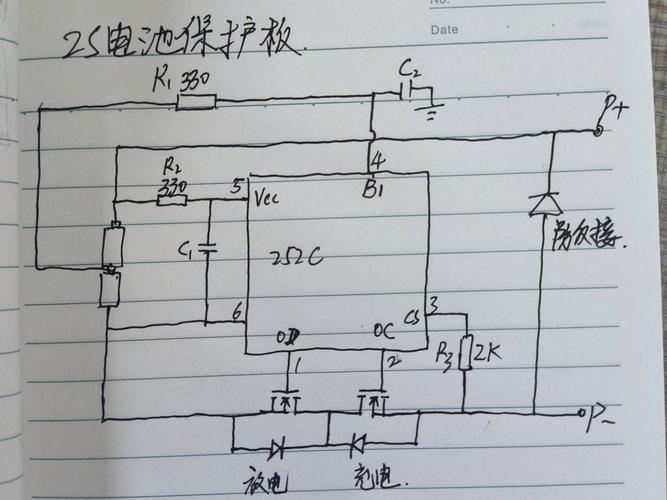 No.
Date
2S电池保护板.
R1 330
C2
P+
R2
330
5
Vcc
4
B1
C1
252C
防反接.
6
OD
OC
CS
3
R3
2K
1
2
P-
放电
充电.